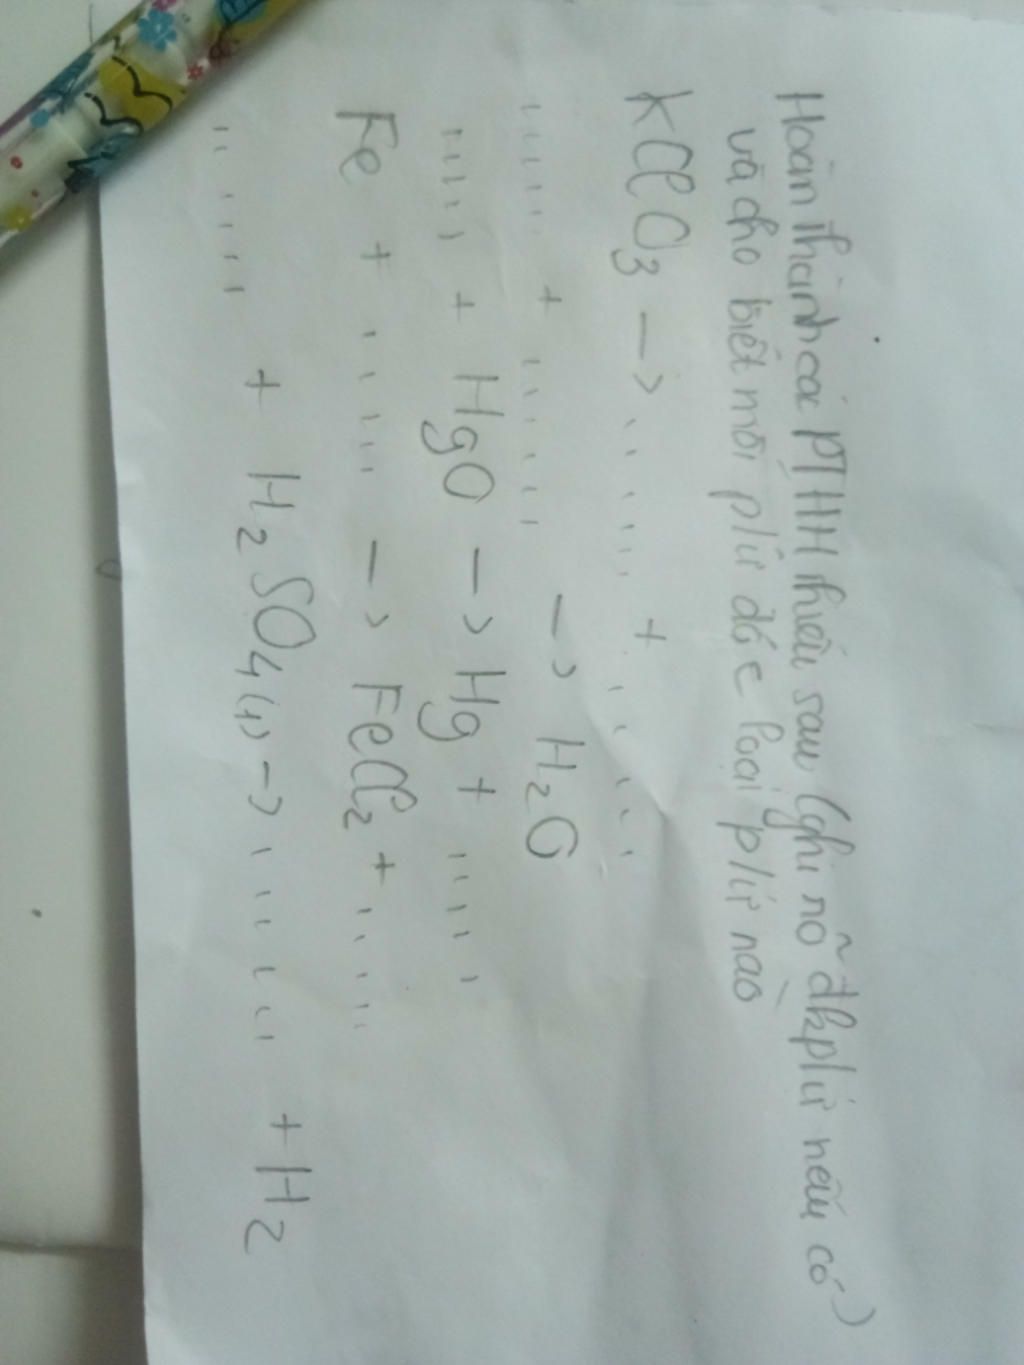 Hoàn thành các PTHH thiếu sau (ghi rõ đkpứ nếu có)
và cho biết mỗi pứ đó ∈ loại pứ nào
KClO₃ → ...... + .....
...... + ...... → H₂O
..... + HgO → Hg + ....
Fe + ..... → FeCl₂ + ....
..... + H₂SO₄(l) → ..... + H₂